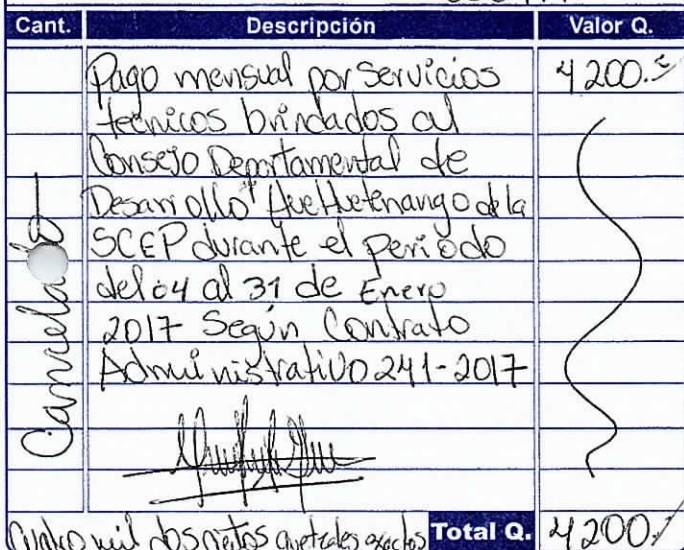 Cant. Descripción Valor Q.
Pago mensual por Servicios 4200.
técnicos brindados al
Consejo Departamental de
Desarrollo Huehuetenango de la
SCEP durante el período
del 04 al 31 de Enero
2017 Según Contrato
Administrativo 241-2017
Cancelado
Cuatro mil doscientos quetzales exactos Total Q. 4200.